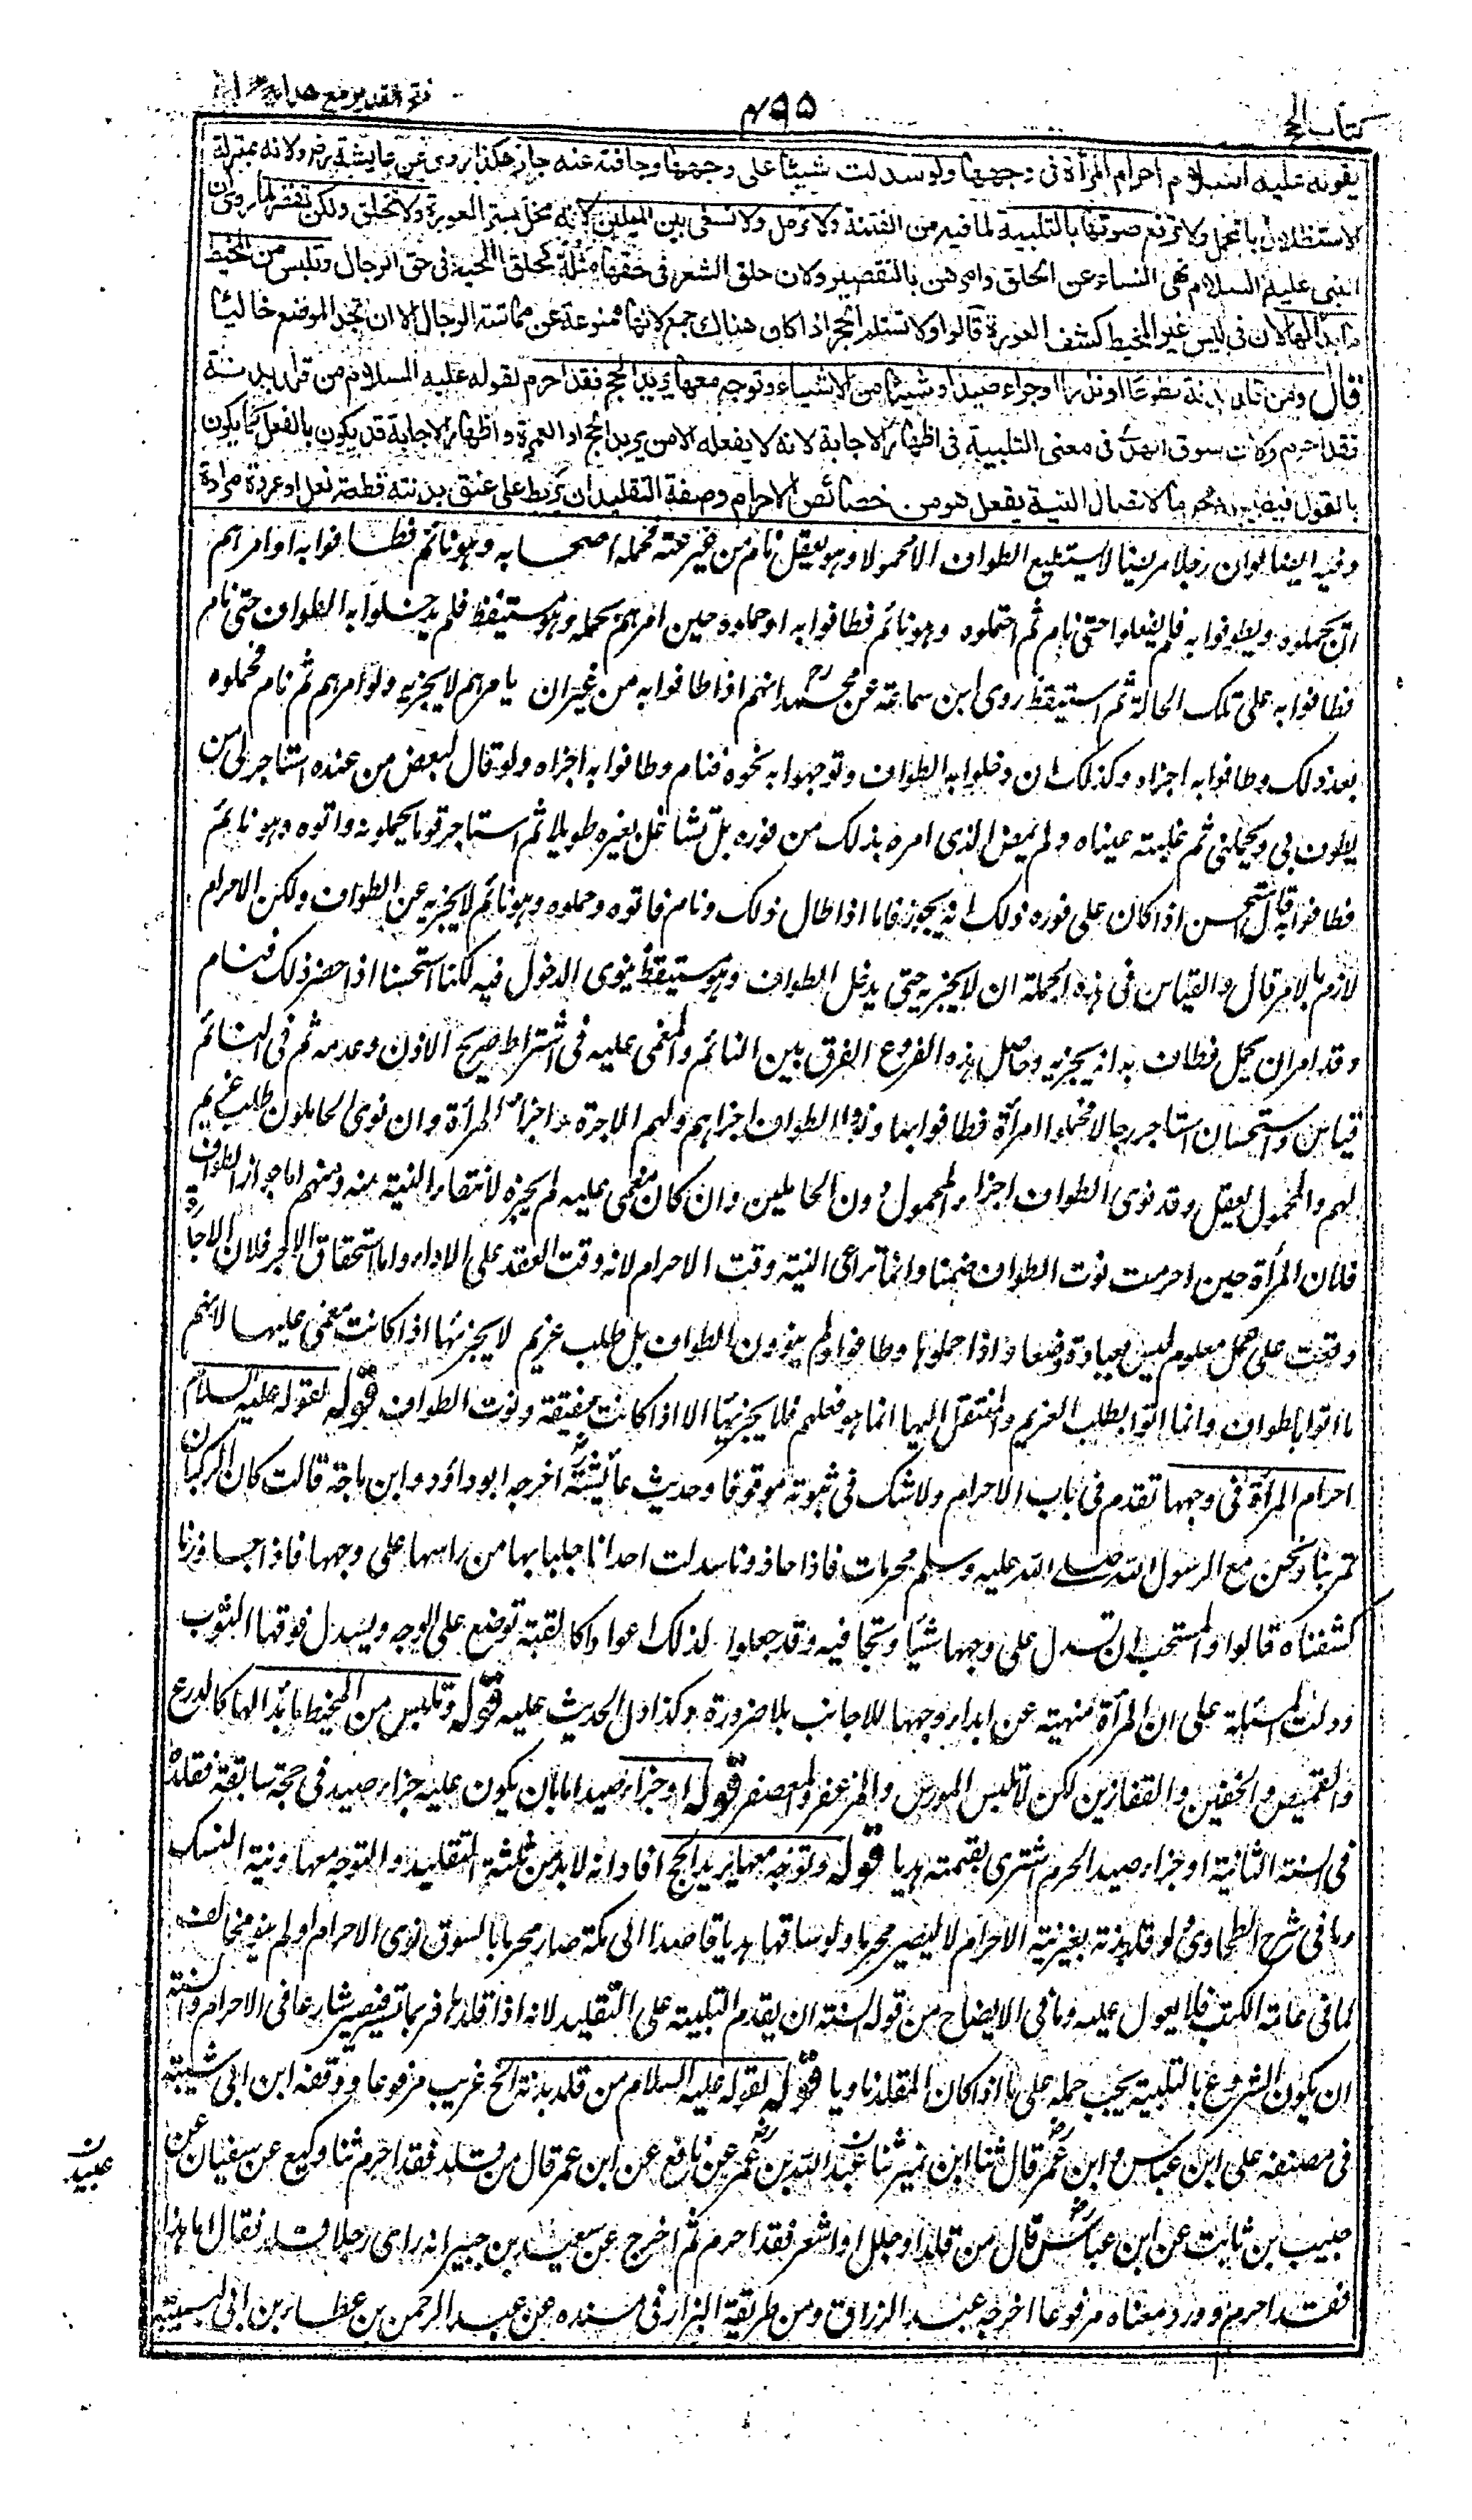 كتاب الحج
٤٩٥
فتح القدير مع هدايه
لقوله عليه السلام احرام المرأة فى وجهها ولو سدلت شيئا على وجهها وجافته عنه جاز هكذا روى عن عايشة رض ولانه بمنزلة
الاستظلال بالمحمل ولا ترفع صوتها بالتلبية لما فيه من الفتنة ولا ترمل ولا تسعى بين الميلين لانه مخل بستر العورة ولا تحلق ولكن تقصر لما روى ان
النبى عليه السلام نهى النساء عن الحلق وامرهن بالتقصير ولان حلق الشعر فى حقها مثلة كحلق اللحية فى حق الرجال وتلبس من المخيط
ما بدا لها لان فى لبس غير المخيط كشف العورة قالوا ولا تستلم الحجر اذا كان هناك جمع لانها ممنوعة عن مماسة الرجال الا ان تجد الموضع خاليا
قال ومن قلد بدنة تطوعا او نذرا او جزاء صيد او شيئا من الاشياء وتوجه معها يريد الحج فقد احرم لقوله عليه السلام من قلد بدنة
فقد احرم ولان سوق الهدى فى معنى التلبية فى اظهار الاجابة لانه لا يفعله الا من يريد الحج او العمرة واظهار الاجابة قد يكون بالفعل كما يكون
بالقول فيصير به محرما لاتصال النية بفعل هو من خصائص الاحرام وصفة التقليد ان يربط على عنق بدنته قطعة نعل او عروة مزادة
وفيه ايضا لو ان رجلا مريضا لا يستطيع الطواف الا محمولا وهو يعقل نام من غير عته فحمله اصحابه وهو نائم فطافوا به او امرهم
ان يحملوه ويطوفوا به فلم يفعلوا حتى نام ثم احتملوه وهو نائم فطافوا به او حملوه حين امرهم بحمله وهو مستيقظ فلم يدخلوا به الطواف حتى نام
فطافوا به على تلك الحالة ثم استيقظ روى ابن سماعة عن محمد رح انهم اذا طافوا به من غير ان يامرهم لا يجزيه ولو امرهم ثم نام فحملوه
بعد ذلك وطافوا به اجزاه وكذلك ان دخلوا به الطواف وتوجهوا به نحوه فنام وطافوا به اجزاه ولو قال لبعض من عنده استاجر لى من
يطوف بى ويحملنى ثم غلبته عيناه ولم يمض الذى امره بذلك من فوره بل تشاغل بغيره طويلا ثم استاجر قوما يحملونه واتوه وهو نائم
فطافوا به قال استحسن اذا كان على فوره ذلك انه يجوز فاما اذا طال ذلك ونام فاتوه وحملوه وهو نائم لا يجزيه عن الطواف ولكن الاحرام
لازم بالامر قال والقياس فى هذه الجملة ان لا يجزيه حتى يدخل الطواف وهو مستيقظ ينوى الدخول فيه لكنا استحسنا اذا حضر ذلك فنام
وقد امر ان يحمل فطاف به انه يجزيه وحاصل هذه الفروع الفرق بين النائم والمغمى عليه فى اشتراط صريح الاذن وعدمه ثم فى النائم
قياس واستحسان استاجر رجالا فحملوا امرأة فطافوا بها ونووا الطواف اجزاهم ولهم الاجرة واجزأ المرأة وان نوى الحاملون طلب غريم
لهم والمحمول يعقل وقد نوى الطواف اجزاء المحمول دون الحاملين وان كان مغمى عليه لم يجزه لانتفاء النية منه ومنهم اما جواز الطواف
فلان المرأة حين احرمت نوت الطواف ضمنا وانما تراعى النية وقت الاحرام لانه وقت العقد على الاداء واما استحقاق الاجر فلان الاجارة
وقعت على عمل معلوم ليس بعبادة وضعا واذا حملوها وطافوا ولم ينوون الطواف بل طلب غريم لا يجزيها اذا كانت مغمى عليها لانهم
ما اتوا بالطواف وانما اتوا بطلب الغريم والمنتقل اليها انما هو فعلهم فلا يجزيها الا اذا كانت مفيقة ونوت الطواف قوله لقوله عليه السلام
احرام المرأة فى وجهها تقدم فى باب الاحرام ولا شك فى ثبوته موقوفا وحديث عائشة رض اخرجه ابو داؤد وابن ماجة قالت كان الركبان
تمر بنا ونحن مع الرسول الله صلى الله عليه وسلم محرمات فاذا حاذونا سدلت احدانا جلبابها من راسها على وجهها فاذا جاوزنا
كشفناه قالوا والمستحب ان تسدل على وجهها شيأ وتجافيه وقد جعلوا لذلك اعوادا كالقبة توضع على الوجه ويسدل فوقها الثوب
ودلت المسئلة على ان المرأة منهية عن ابداء وجهها للاجانب بلا ضرورة وكذا دل الحديث عليه قوله وتلبس من المخيط ما بدا لها كالدرع
والقميص والخفين والقفازين لكن لا تلبس المورس والمزعفر والمعصفر قوله او جزاء صيد اما بان يكون عليه جزاء صيد فى حجة سابقة فقلده
فى السنة الثانية او جزاء صيد الحرم اشترى بقيمته هديا قوله وتوجه معها يريد الحج افاد انه لا بد من ثلثة التقليد والتوجه معها ونية النسك
وما فى شرح الطحاوى لو قلد بدنة بغير نية الاحرام لا يصير محرما ولو ساقها هديا قاصدا الى مكة صار محرما بالسوق نوى الاحرام او لم ينو مخالف
لما فى عامة الكتب فلا يعول عليه وما فى الايضاح من قوله السنة ان يقدم التلبية على التقليد لانه اذا قلدها فربما تسير فيصير شارعا فى الاحرام والسنة
ان يكون الشروع بالتلبية يجب حمله على ما اذا كان المقلد ناويا قوله لقوله عليه السلام من قلد بدنة الخ غريب مرفوعا ووقفه ابن ابى شيبة
فى مصنفه على ابن عباس وابن عمر رض قال ثنا ابن نمير ثنا عبد الله بن عمر رض عن نافع عن ابن عمر قال من قلد فقد احرم ثنا وكيع عن سفيان عن
حبيب بن ثابت عن ابن عباس رض قال من قلد او جلل او اشعر فقد احرم ثم اخرج عن سعيد بن جبير انه راى رجلا قلد فقال اما هذا
فقد احرم وورد معناه مرفوعا اخرجه عبد الرزاق ومن طريقه البزار فى مسنده عن عبد الرحمن بن عطاء بن ابى لبيبة
عبيد ن